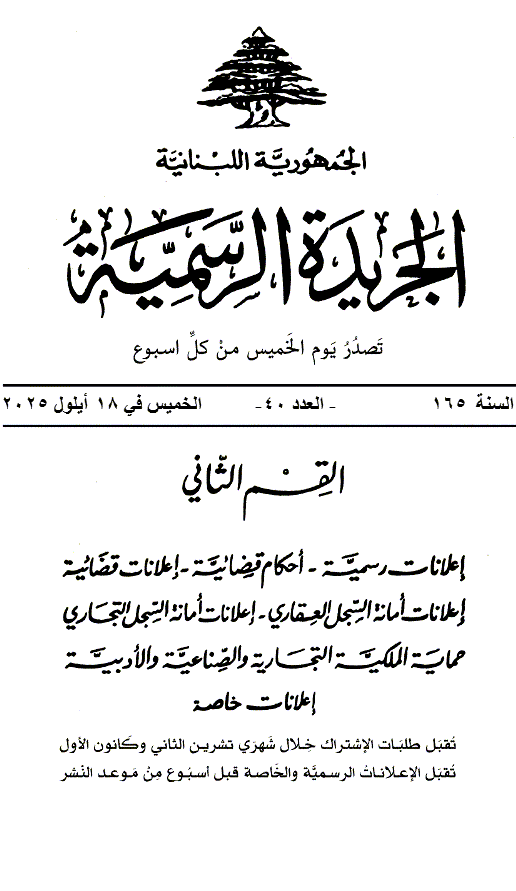 الجُمهُوريَّة اللبْنانيَّة
الجَريدَة الرسَّميَّة
تَصدُرُ يَوم الخَميس منْ كلِّ اسبوع
السنة ١٦٥ - العدد ٤٠- الخميس في ١٨ أيلول ٢٠٢٥
القِسْم الثَّاني
إعلانات رسميَّة - أحكام قضائيَّة - إعلانات قضائية
إعلانات أمانة السِّجل العقاري - إعلانات أمانة السِّجل التجاري
حماية الملكيَّة التجارية والصِّناعيَّة والأدبيَّة
إعلانات خاصة
تُقبَل طلبَات الإشتراك خِلال شَهرَي تشرين الثاني وكَانون الأول
تُقبَل الإعلاناتُ الرسميَّة والخَاصة قبل أسبُوع مِنْ مَوعد النَشر